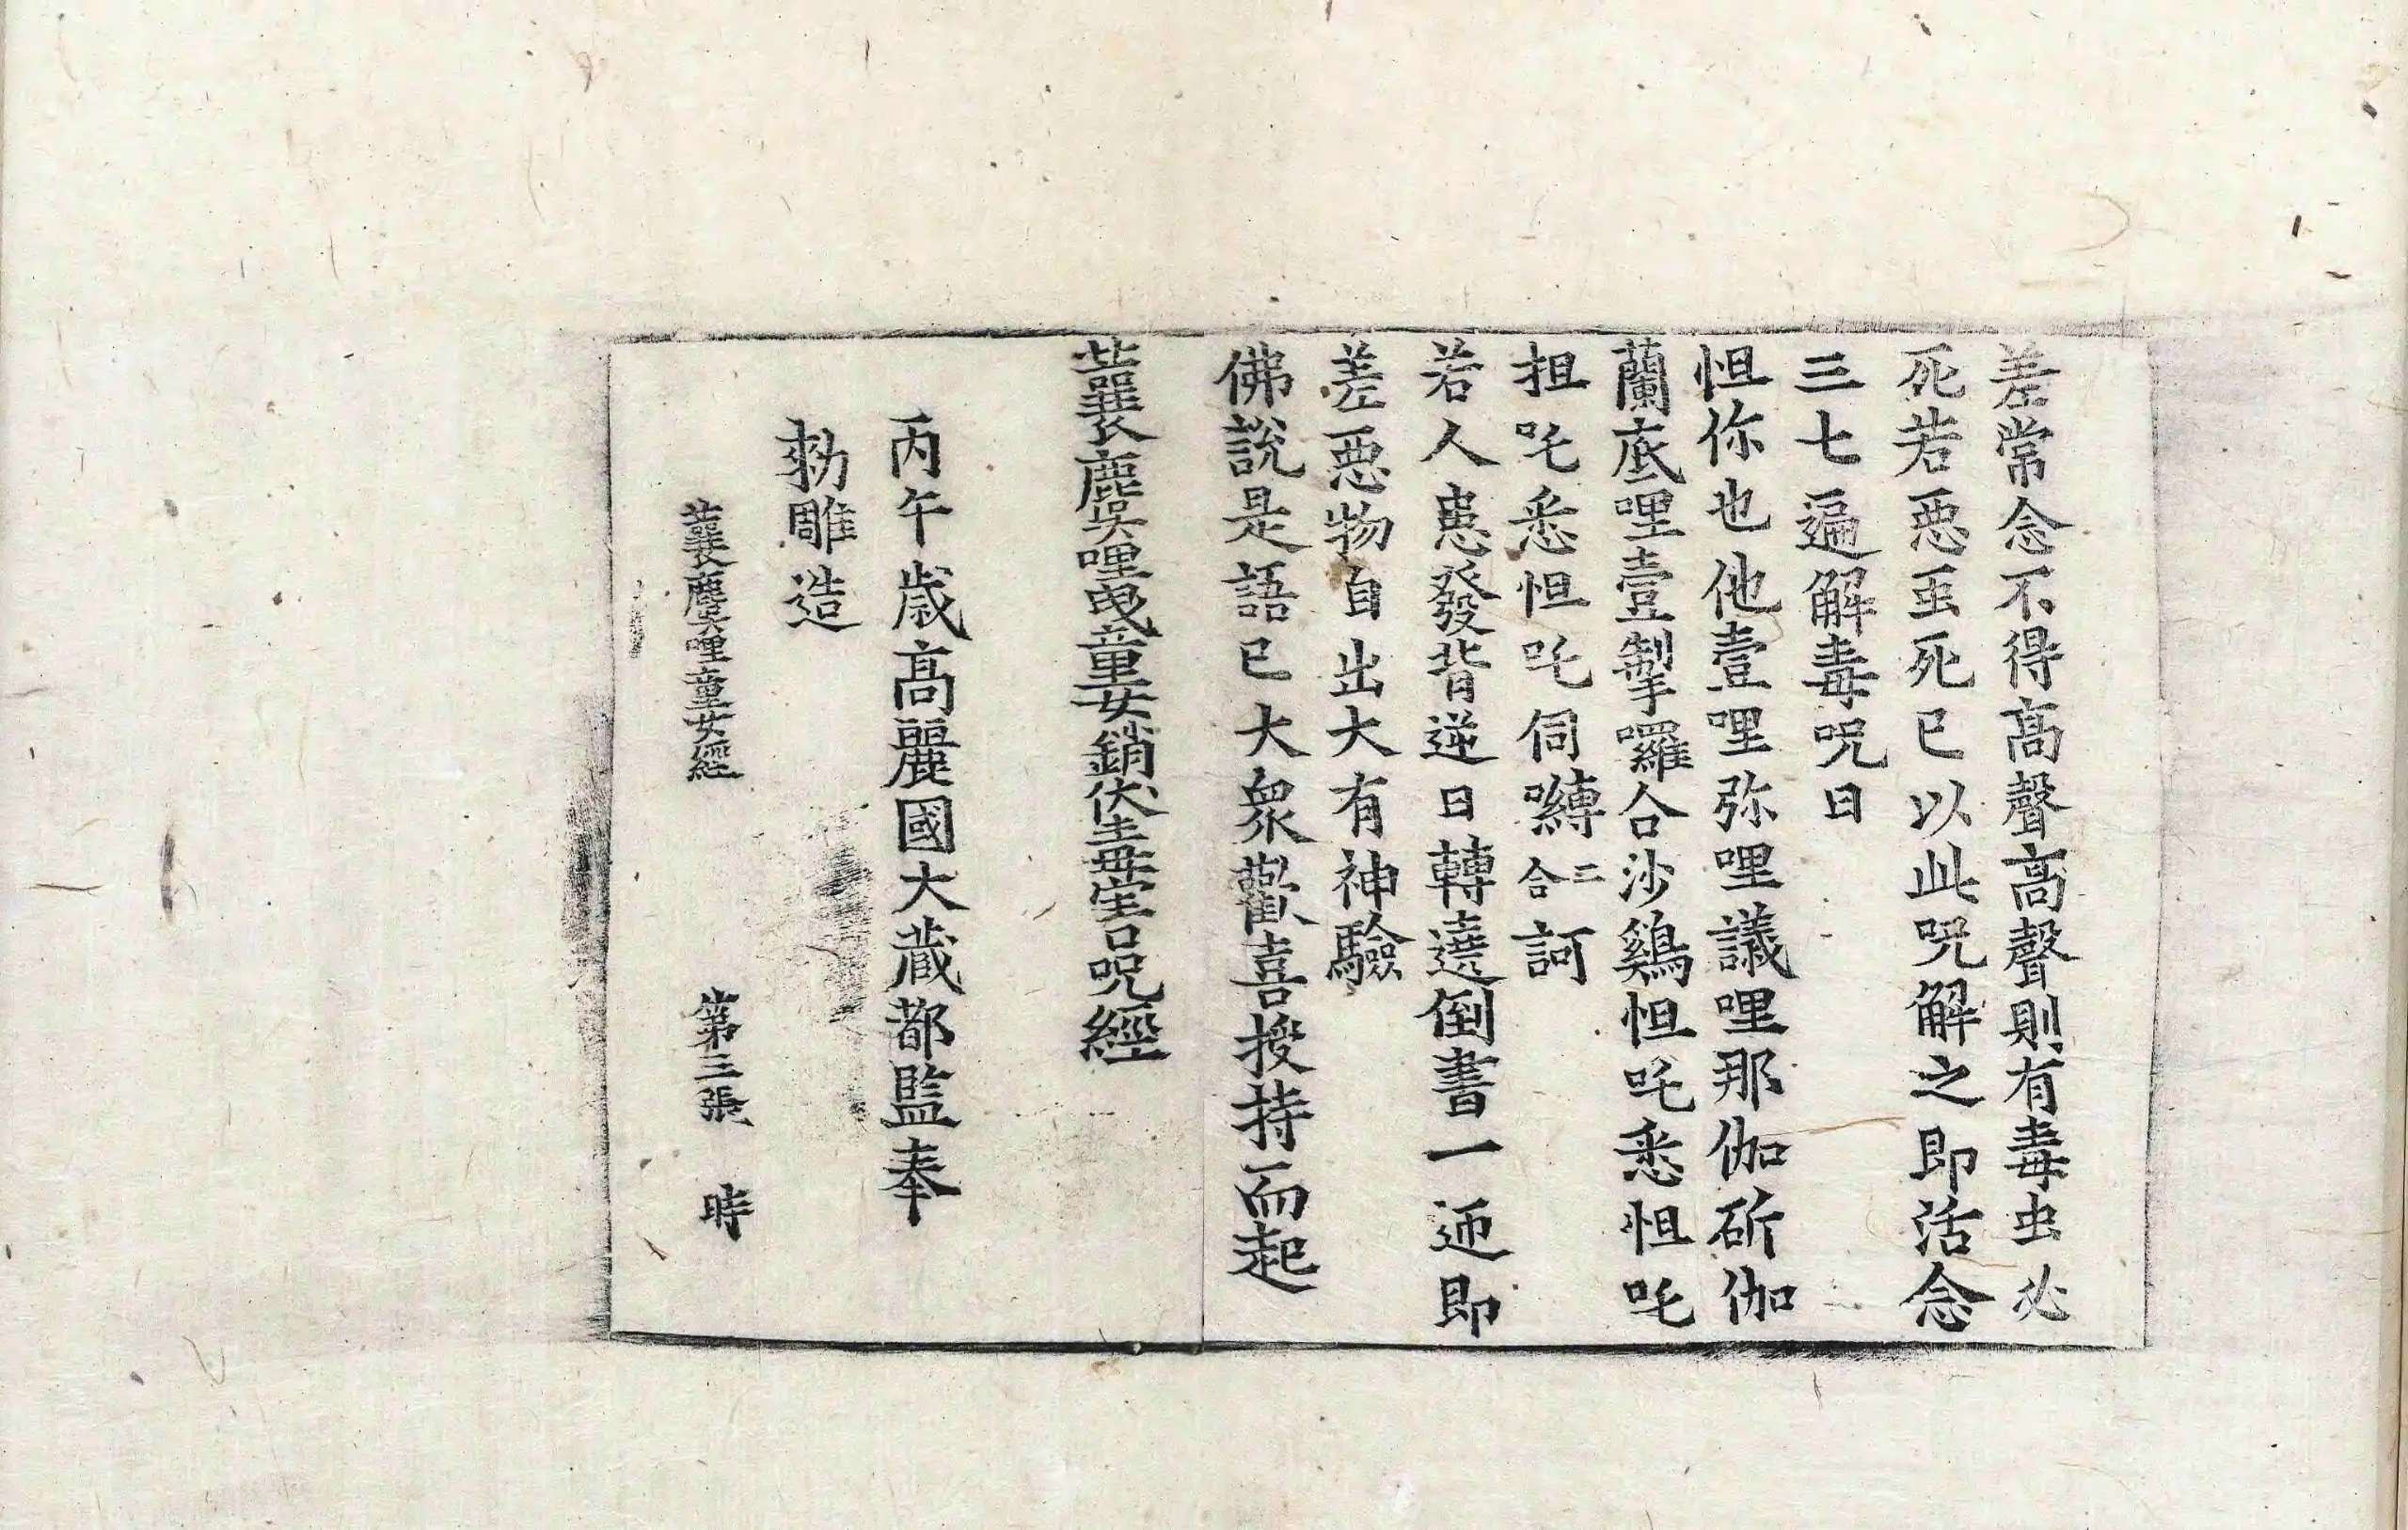 差常念不得高聲高聲則有毒虫必
死若惡虫死已以此呪解之即活念
三七遍解毒呪曰
怛你也他壹哩弥哩議哩那伽斫伽
蘭底哩壹掣囉合沙鷄怛吒悉怛吒
担吒悉怛吒伺嚩二合訶
若人患發背逆日轉遶倒書一迊即
差惡物自出大有神驗
佛說是語已大衆歡喜授持而起
蘘麌哩曵童女銷伏毒害呪經
丙午歳高麗國大藏都監奉
勑雕造
蘘麌哩童女經 第三張 時